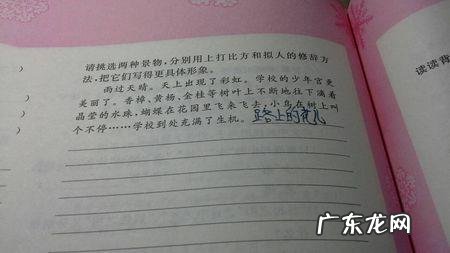 请挑选两种景物，分别用上打比方和拟人的修辞方
法，把它们写得更具体形象。
雨过天晴。天上出现了彩虹。学校的少年宫更
美丽了。香樟、黄杨、金桂等树叶上不断地往下滴着
晶莹的水珠，蝴蝶在花园里飞来飞去，小鸟在树上叫
个不停……学校到处充满了生机。路上的花儿
)
)
)
)
读读背
广东龙网